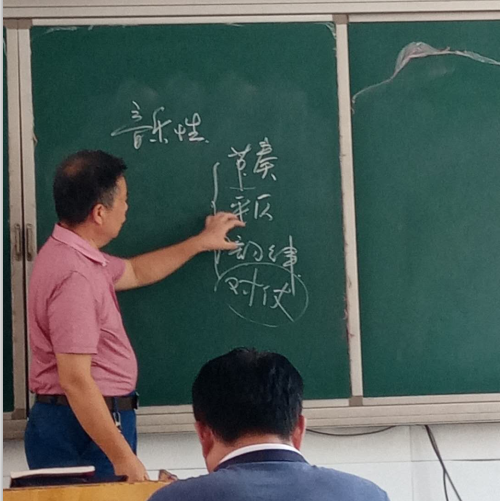 音乐性
节奏
平仄
韵律
对仗